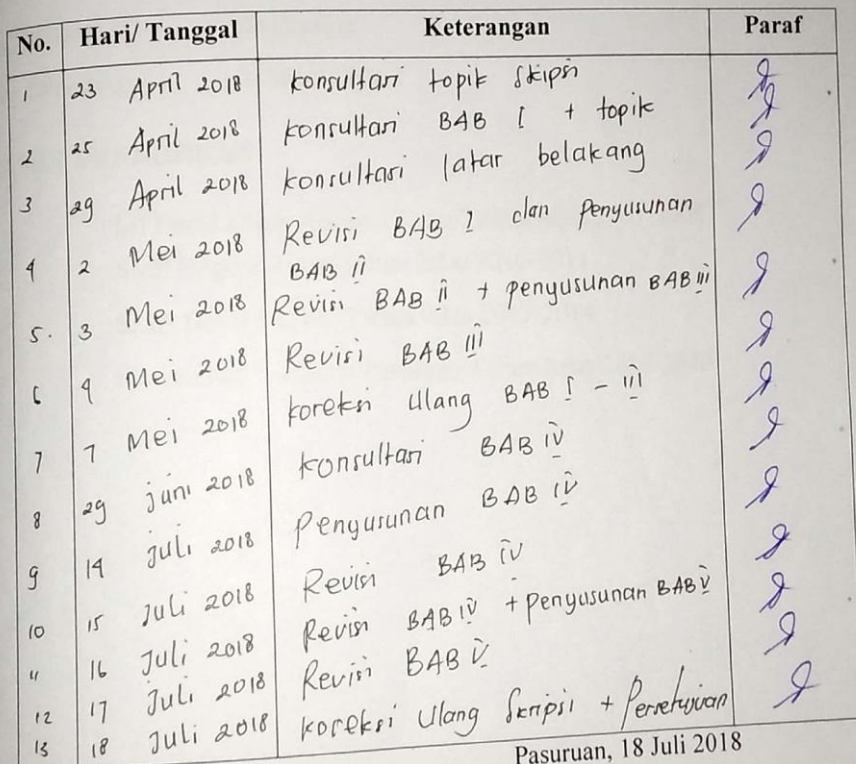 No. Hari/ Tanggal Keterangan Paraf
1 23 April 2018 konsultasi topik skipsi
2 25 April 2018 konsultasi BAB I + topik
3 29 April 2018 konsultasi latar belakang
4 2 Mei 2018 Revisi BAB I dan Penyusunan
BAB II
5. 3 Mei 2018 Revisi BAB II + penyusunan BAB III
6 4 Mei 2018 Revisi BAB III
7 7 Mei 2018 koreksi Ulang BAB I - III
8 29 juni 2018 konsultasi BAB IV
9 14 juli 2018 Penyusunan BAB IV
10 15 Juli 2018 Revisi BAB IV
11 16 Juli 2018 Revisi BAB IV + Penyusunan BAB V
12 17 Juli 2018 Revisi BAB V
13 18 Juli 2018 koreksi Ulang Skripsi + Persetujuan
Pasuruan, 18 Juli 2018